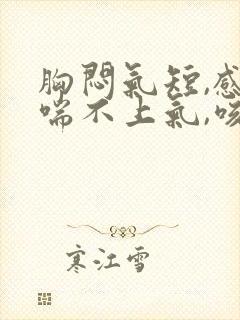 胸悶氣短,感
喘不上氣,咳
寒江雪